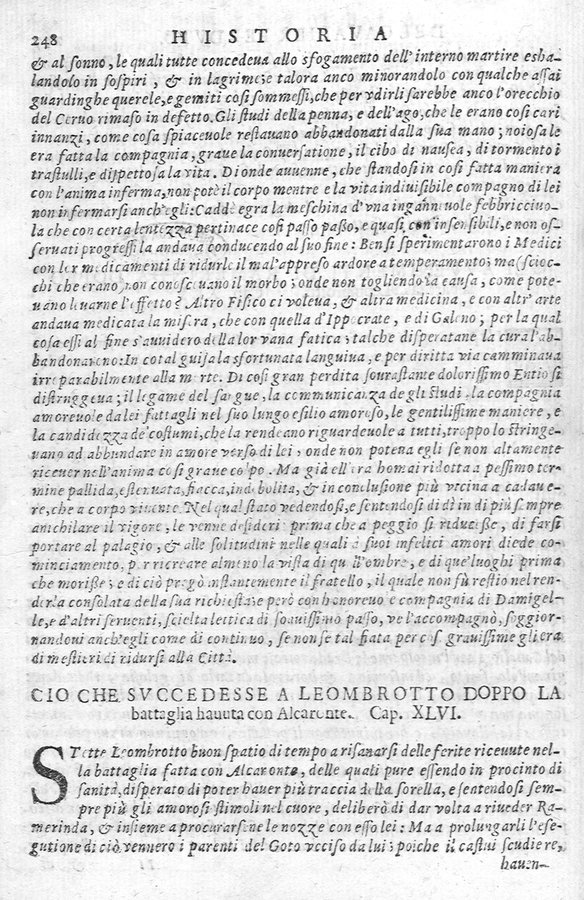 248 HISTORIA
& al sonno, le quali tutte concedeua allo sfogamento dell'interno martire esha-
landolo in sospiri, & in lagrimeje talora anco minorandolo con qualche assai
guardinghe querele, e gemiti cosi sommessi, che per vdirli sarebbe anco l'orecchio
del Ceruo rimaso in defetto. Gli studi della penna, e dell'ago, che le erano cosi cari
innanzi, come cosa spiaceuole restauano abbandonati dalla sua mano; noiosa le
era fatta la compagnia, graue la conuersatione, il cibo di nausea, di tormento i
trastulli, e dispettosa la vita. Di onde auuenne, che standosi in cosi fatta maniera
con l'anima inferma, non potè il corpo mentre e la vita indiuisibile compagno di lei
non infermarsi anch'egli: Caddè egra la meschina d'vna inganneuole febbricciuo-
la che con certa lentezza pertinace cosi passo passo, e quasi con insensibili, e non os-
seruati progressi la andaua conducendo al suo fine: Ben si sperimentarono i Medici
con lor medicamenti di ridurle il mal'appreso ardore a temperamento; ma (sciocc-
chi che erano) non conosceuano il morbo; onde non togliendo la causa, come pote-
uano leuarne l'effetto? Altro Fisico ci voleua, & altra medicina, e con altr'arte
andaua medicata la misera, che con quella d'Ippocrate, e di Galeno; per la qual
cosa essi al fine s'auuidero della lor vana fatica; talche disperatane la cura l'ab-
bandonareno: In cotal guisa la sfortunata languiua, e per diritta via camminaua
irreparabilmente alla morte. Di cosi gran perdita sourastante dolorissimo Entio si
distruggeua; il legame del sangue, la communicanza degli studi, la compagnia
amoreuole da lei fattagli nel suo lungo esilio amoroso, le gentilissime maniere, e
la candidezza de'costumi, che la rendeano riguardeuole a tutti, troppo lo stringe-
uano ad abbundare in amore verso di lei, onde non poteua egli se non altamente
riceuer nell'anima cosi graue colpo. Ma già ell'era homai ridotta a pessimo ter-
mine pallida, estenuata, fiacca, indebolita, & in conclusione più vicina a cadaue-
re, che a corpo viuente. Nel qual stato vedendosi, e sentendosi di dì in di più sempre
annichilare il vigore, le venne desiderio prima che a peggio si riducesse, di farsi
portare al palagio, & alle solitudini nelle quali a suoi infelici amori diede co-
minciamento, per ricreare almeno la vista di qu ll'ombre, e di que'luoghi prima
che morisse; e di ciò pregò instantemente il fratello, il quale non fù restìo nel ren-
derla consolata della sua richiesta; e però con honoreuole compagnia di Damigel-
le, e d'altri seruenti, scielta lettica di soauissimo passo, ve l'accompagnò, soggior-
nandoui anch'egli come di continuo, se non se tal fiata per cose grauissime gli era
di mestieri di ridursi alla Città.
CIO CHE SVCCEDESSE A LEOMBROTTO DOPPO LA
battaglia hauuta con Alcaronte. Cap. XLVI.
STette Leombrotto buon spatio di tempo a risanarsi delle ferite riceuute nel-
la battaglia fatta con Alcaronte, delle quali pure essendo in procinto di
sanità, disperato di poter hauer più traccia della sorella, e sentendosi sem-
pre più gli amorosi stimoli nel cuore, deliberò di dar volta a riueder Ra-
merinda, & insieme a procurarsene le nozze con esso lei: Ma a prolungarli l'ese-
gutione di ciò vennero i parenti del Goto vcciso da lui; poiche il costui scudiere,
hauen-